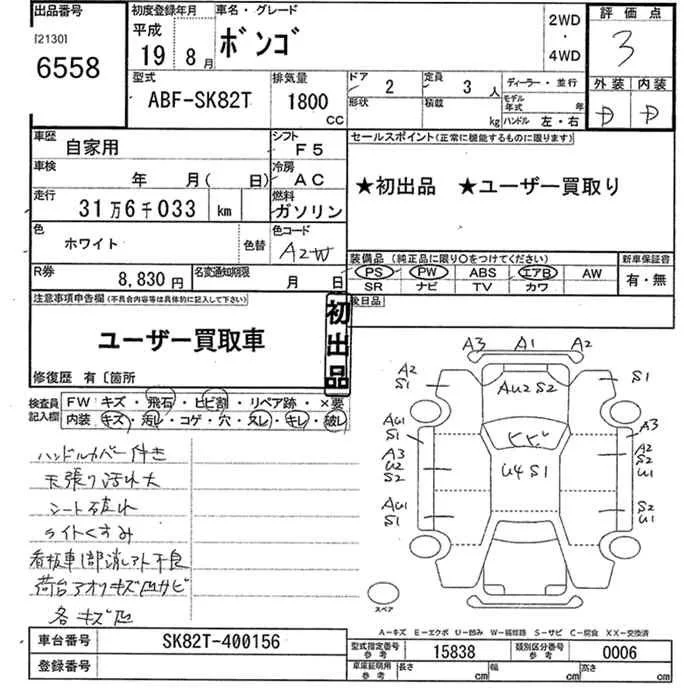 出品番号
[2130]
6558
初度登録年月
平成
19年 8月
車名・グレード
ボンゴ
2WD
・
4WD
評価点
3
外装 内装
D D
型式
ABF-SK82T
排気量
1800
CC
ドア 2
定員 3 人
形状
積載 kg
ディーラー・並行
モデル年式 年
ハンドル 左・右
車歴
自家用
シフト
F5
車検
年 月( 日)
冷房
AC
走行
31万6千033 km
燃料
ガソリン
色
ホワイト
色替
色コード
A2W
R券
8,830円
名変通知期限
月 日
セールスポイント(正常に機能するものに限ります)
★初出品 ★ユーザー買取り
装備品 (純正品に限り○をつけてください)
PS PW ABS エアB AW
SR ナビ TV カワ
新車保証書
有・無
後日品
注意事項申告欄 (不具合内容等は具体的に記入して下さい)
ユーザー買取車
初出品
修復歴 有〔箇所
検査員記入欄
FW キズ・飛石・ヒビ割・リペア跡・×要
内装 キズ・汚レ・コゲ・穴・スレ・キレ・破レ
ハンドルカバー付き
天張り汚れ大
シート破れ
ライトくすみ
看板車1部消しアト不良
荷台アオリキズ凹サビ
各キズ凹
A3 A1 A2
A2
S1
S1
AU2 S2
AU1
S1
A3
ヒビ
A3
U2
S2
A2
S2
U1
U4 S1
AU1
S1
S2
U1
スペア
A-キズ E-エクボ U-凹み W-補修跡 S-サビ C-腐食 XX-交換済
車台番号
SK82T-400156
登録番号
型式指定番号
参考
15838
類別区分番号
参考
0006
車庫証明用
参考
長さ cm
幅 cm
高さ cm